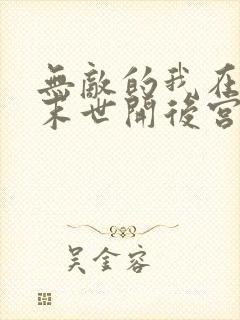 無敵的我在
末世開後宮
吳金容